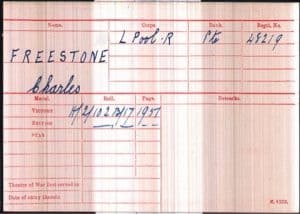 Name. Corps. Rank. Regtl. No.
FREESTONE L Pool. R Pte 48219
Charles
Medal. Roll. Page. Remarks.
VICTORY 1957
BRITISH
STAR
Theatre of War first served in
Date of entry therein